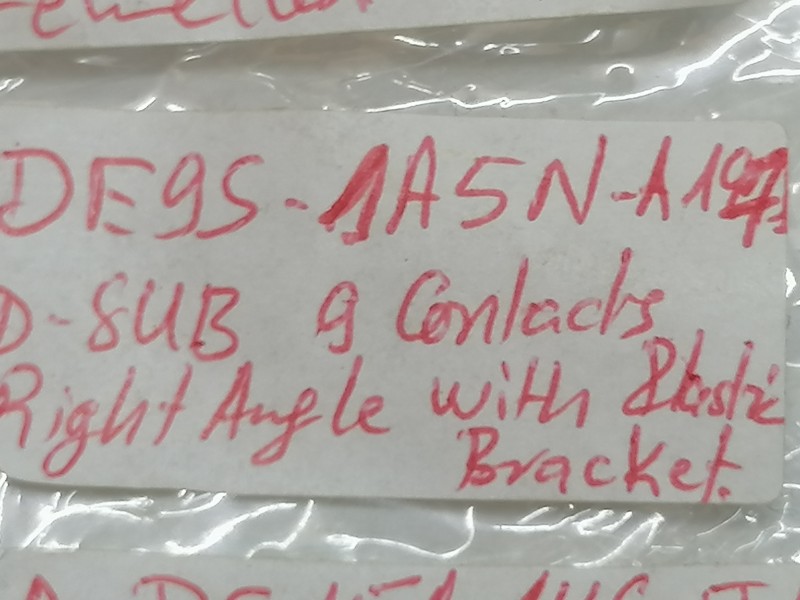 DE9S-1A5N-A197
D-SUB 9 Contacts
Right Angle with Plastic
Bracket.